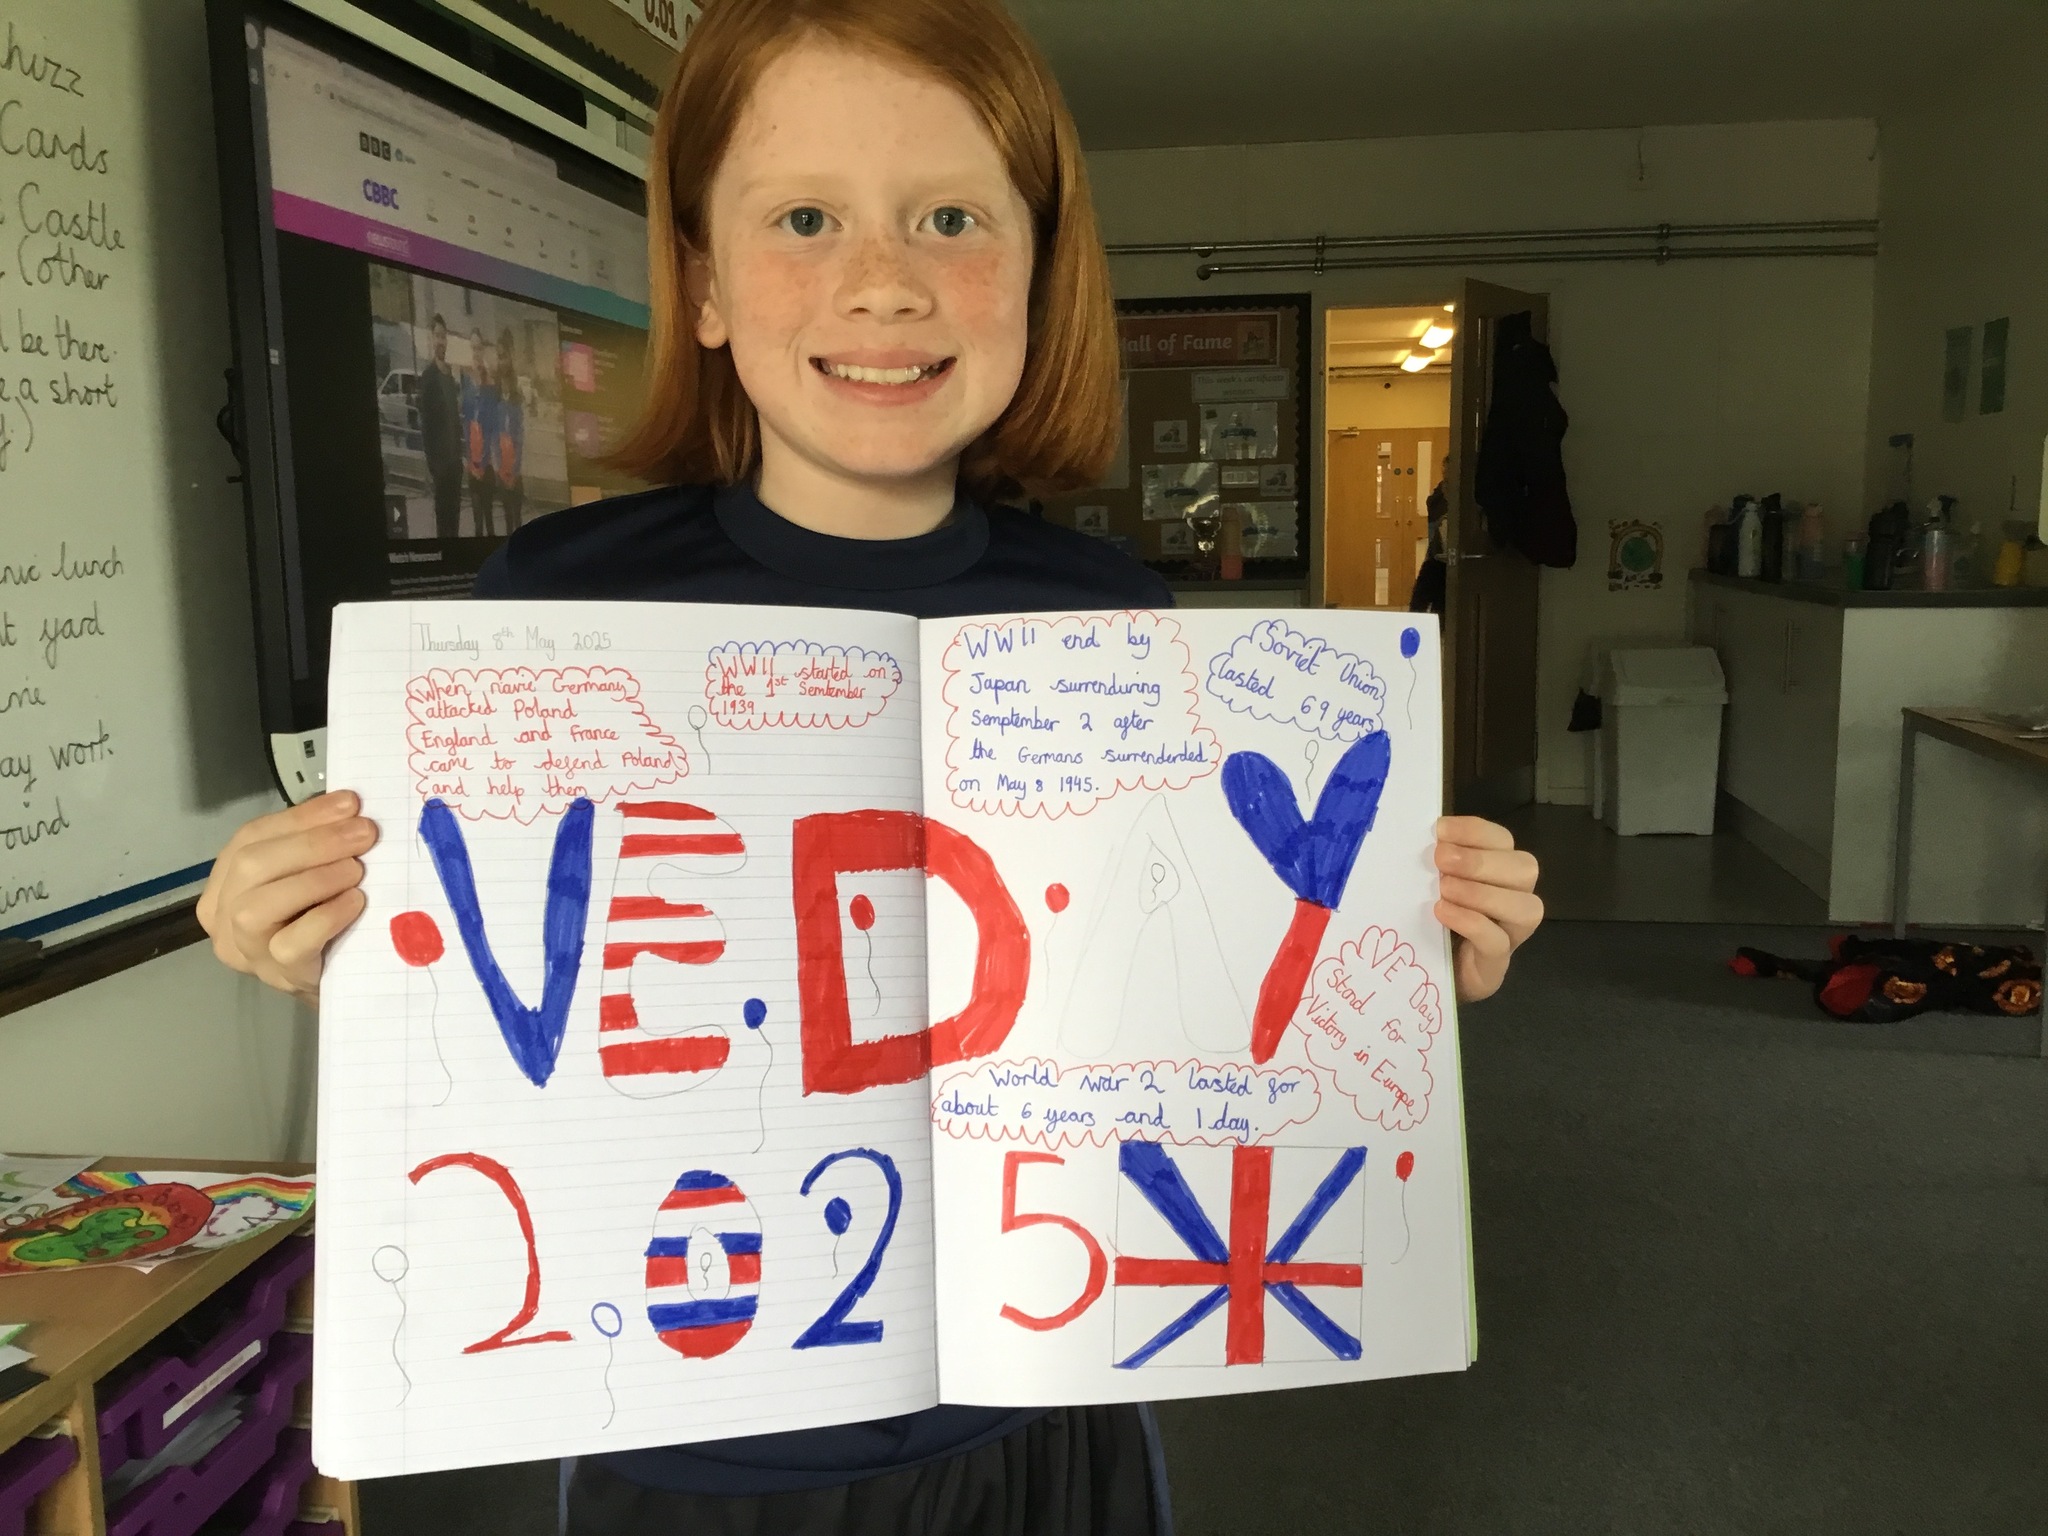 hizz
Cards
Castle
(other
be there.
a short
lunch
yard
work.
ound
time
0.01
BBC
CBBC
newsround
Watch Newsround
Hall of Fame
This week's certificate
Thursday 8th May 2025
When navie Germany
attacked Poland
England and France
came to defend Poland
and help them
WW11 started on
the 1st Semtember
1939
WW11 end by
Japan surrenduring
Semptember 2 after
the Germans surrenderded
on May 8 1945.
Soviet Union
lasted 69 years
VE DAY
VE Day
Stand for
Victory in Europe
World war 2 lasted for
about 6 years and 1 day.
2025